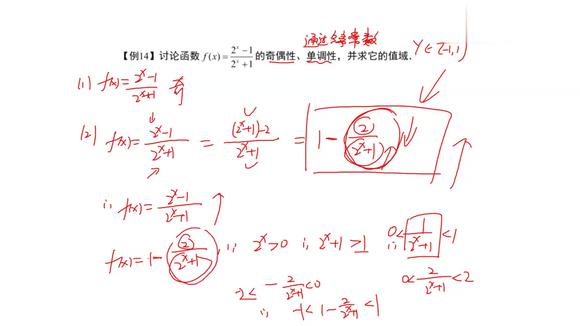 通过分离常数
【例14】讨论函数 f(x)=(2^x-1)/(2^x+1) 的奇偶性、单调性，并求它的值域.
y∈(-1,1)
(1) f(x)=(2^x-1)/(2^x+1) 奇
(2) f(x)=(2^x-1)/(2^x+1) = ((2^x+1)-2)/(2^x+1) = 1-2/(2^x+1)
∴ f(x)=(2^x-1)/(2^x+1) ↑
f(x)=1-2/(2^x+1) ∵ 2^x>0 ∴ 2^x+1>1 ∴ 0<1/(2^x+1)<1
0<2/(2^x+1)<2
-2<-2/(2^x+1)<0
∴ -1<1-2/(2^x+1)<1